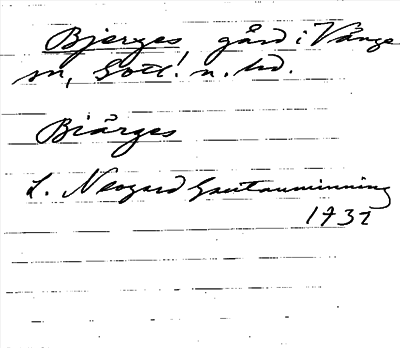 Bjerges, gård i Vänge
sn, Gotl. n. hd.
Biärges
L. Neogard Gautauminning
1732